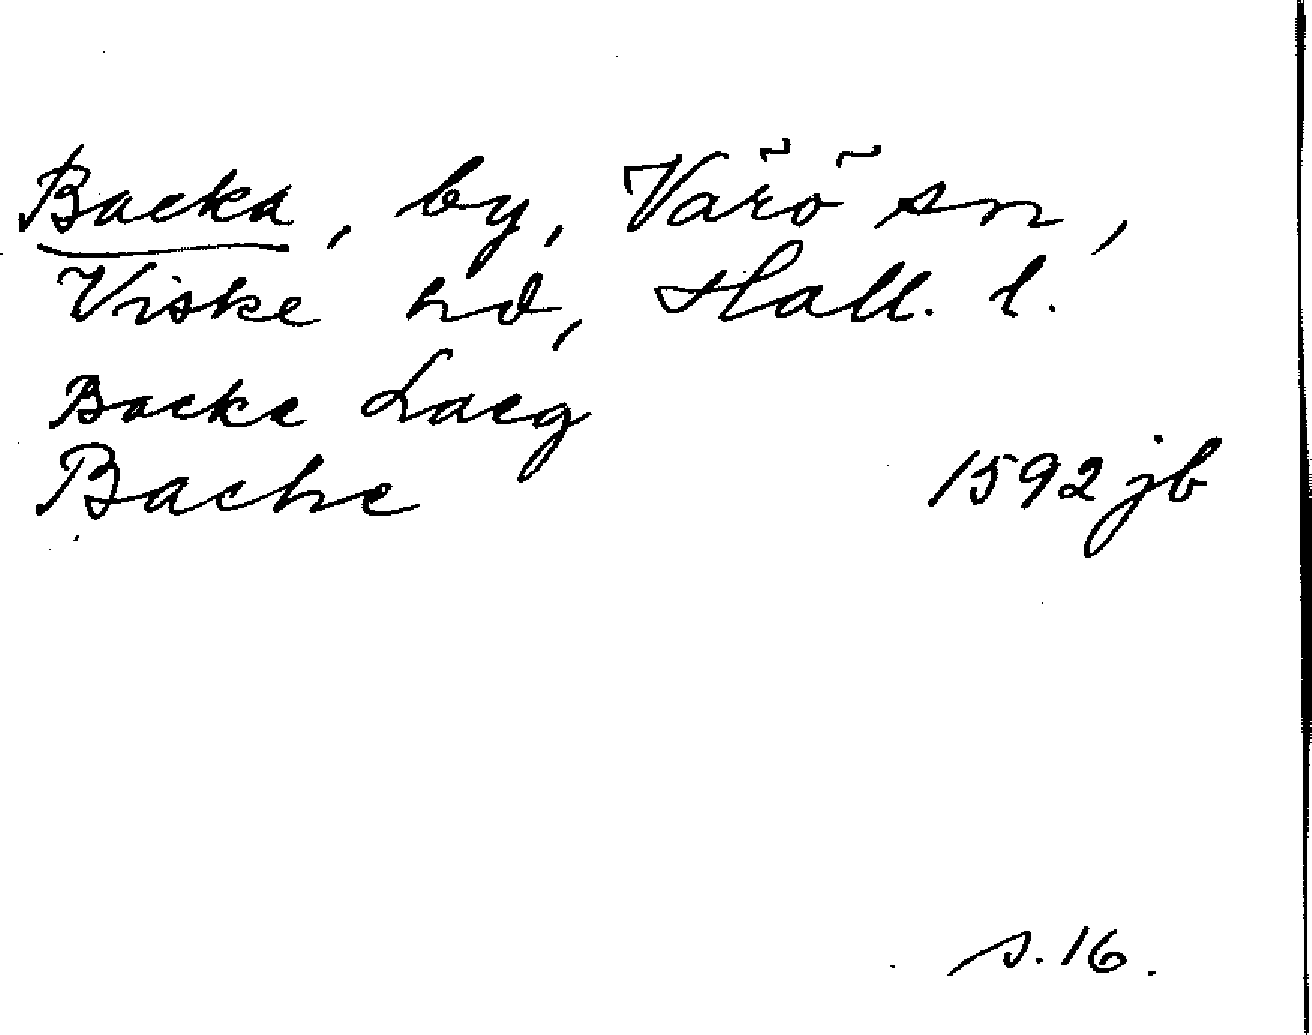 Backa, by, Värö sn,
Viske hd, Hall. l.
Backe Laeg
Bache 1592 jb
s. 16.